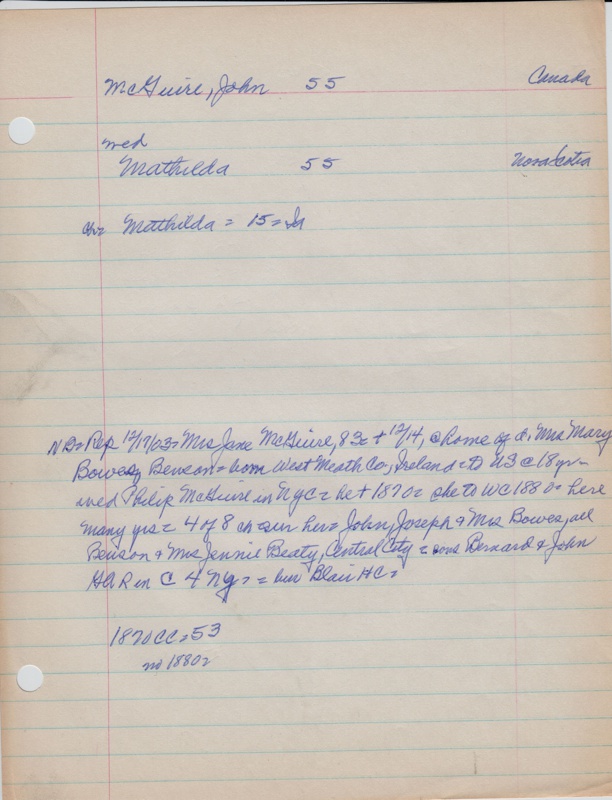 McGuire, John 55 Canada
wed
Mathilda 55 Nova Scotia
ch= Mathilda = 15 = Ia
ND= Rep 12/17/03= Mrs Jane McGuire, 83= + 12/14, @ home of d, Mrs Mary
Bowes, Benson = born West Meath Co, Ireland = to US @ 18 yr=
wed Philip McGuire in NYC = he + 1870= she to WC 1880= here
many yrs = 4 of 8 ch = sur her= John, Joseph & Mrs Bowes, all
Benson & Mrs Jennie Beaty, Central City = sons Bernard & John
in C 4 Ny= = bur Blair HC=
1870 CC= 53
no 1880=